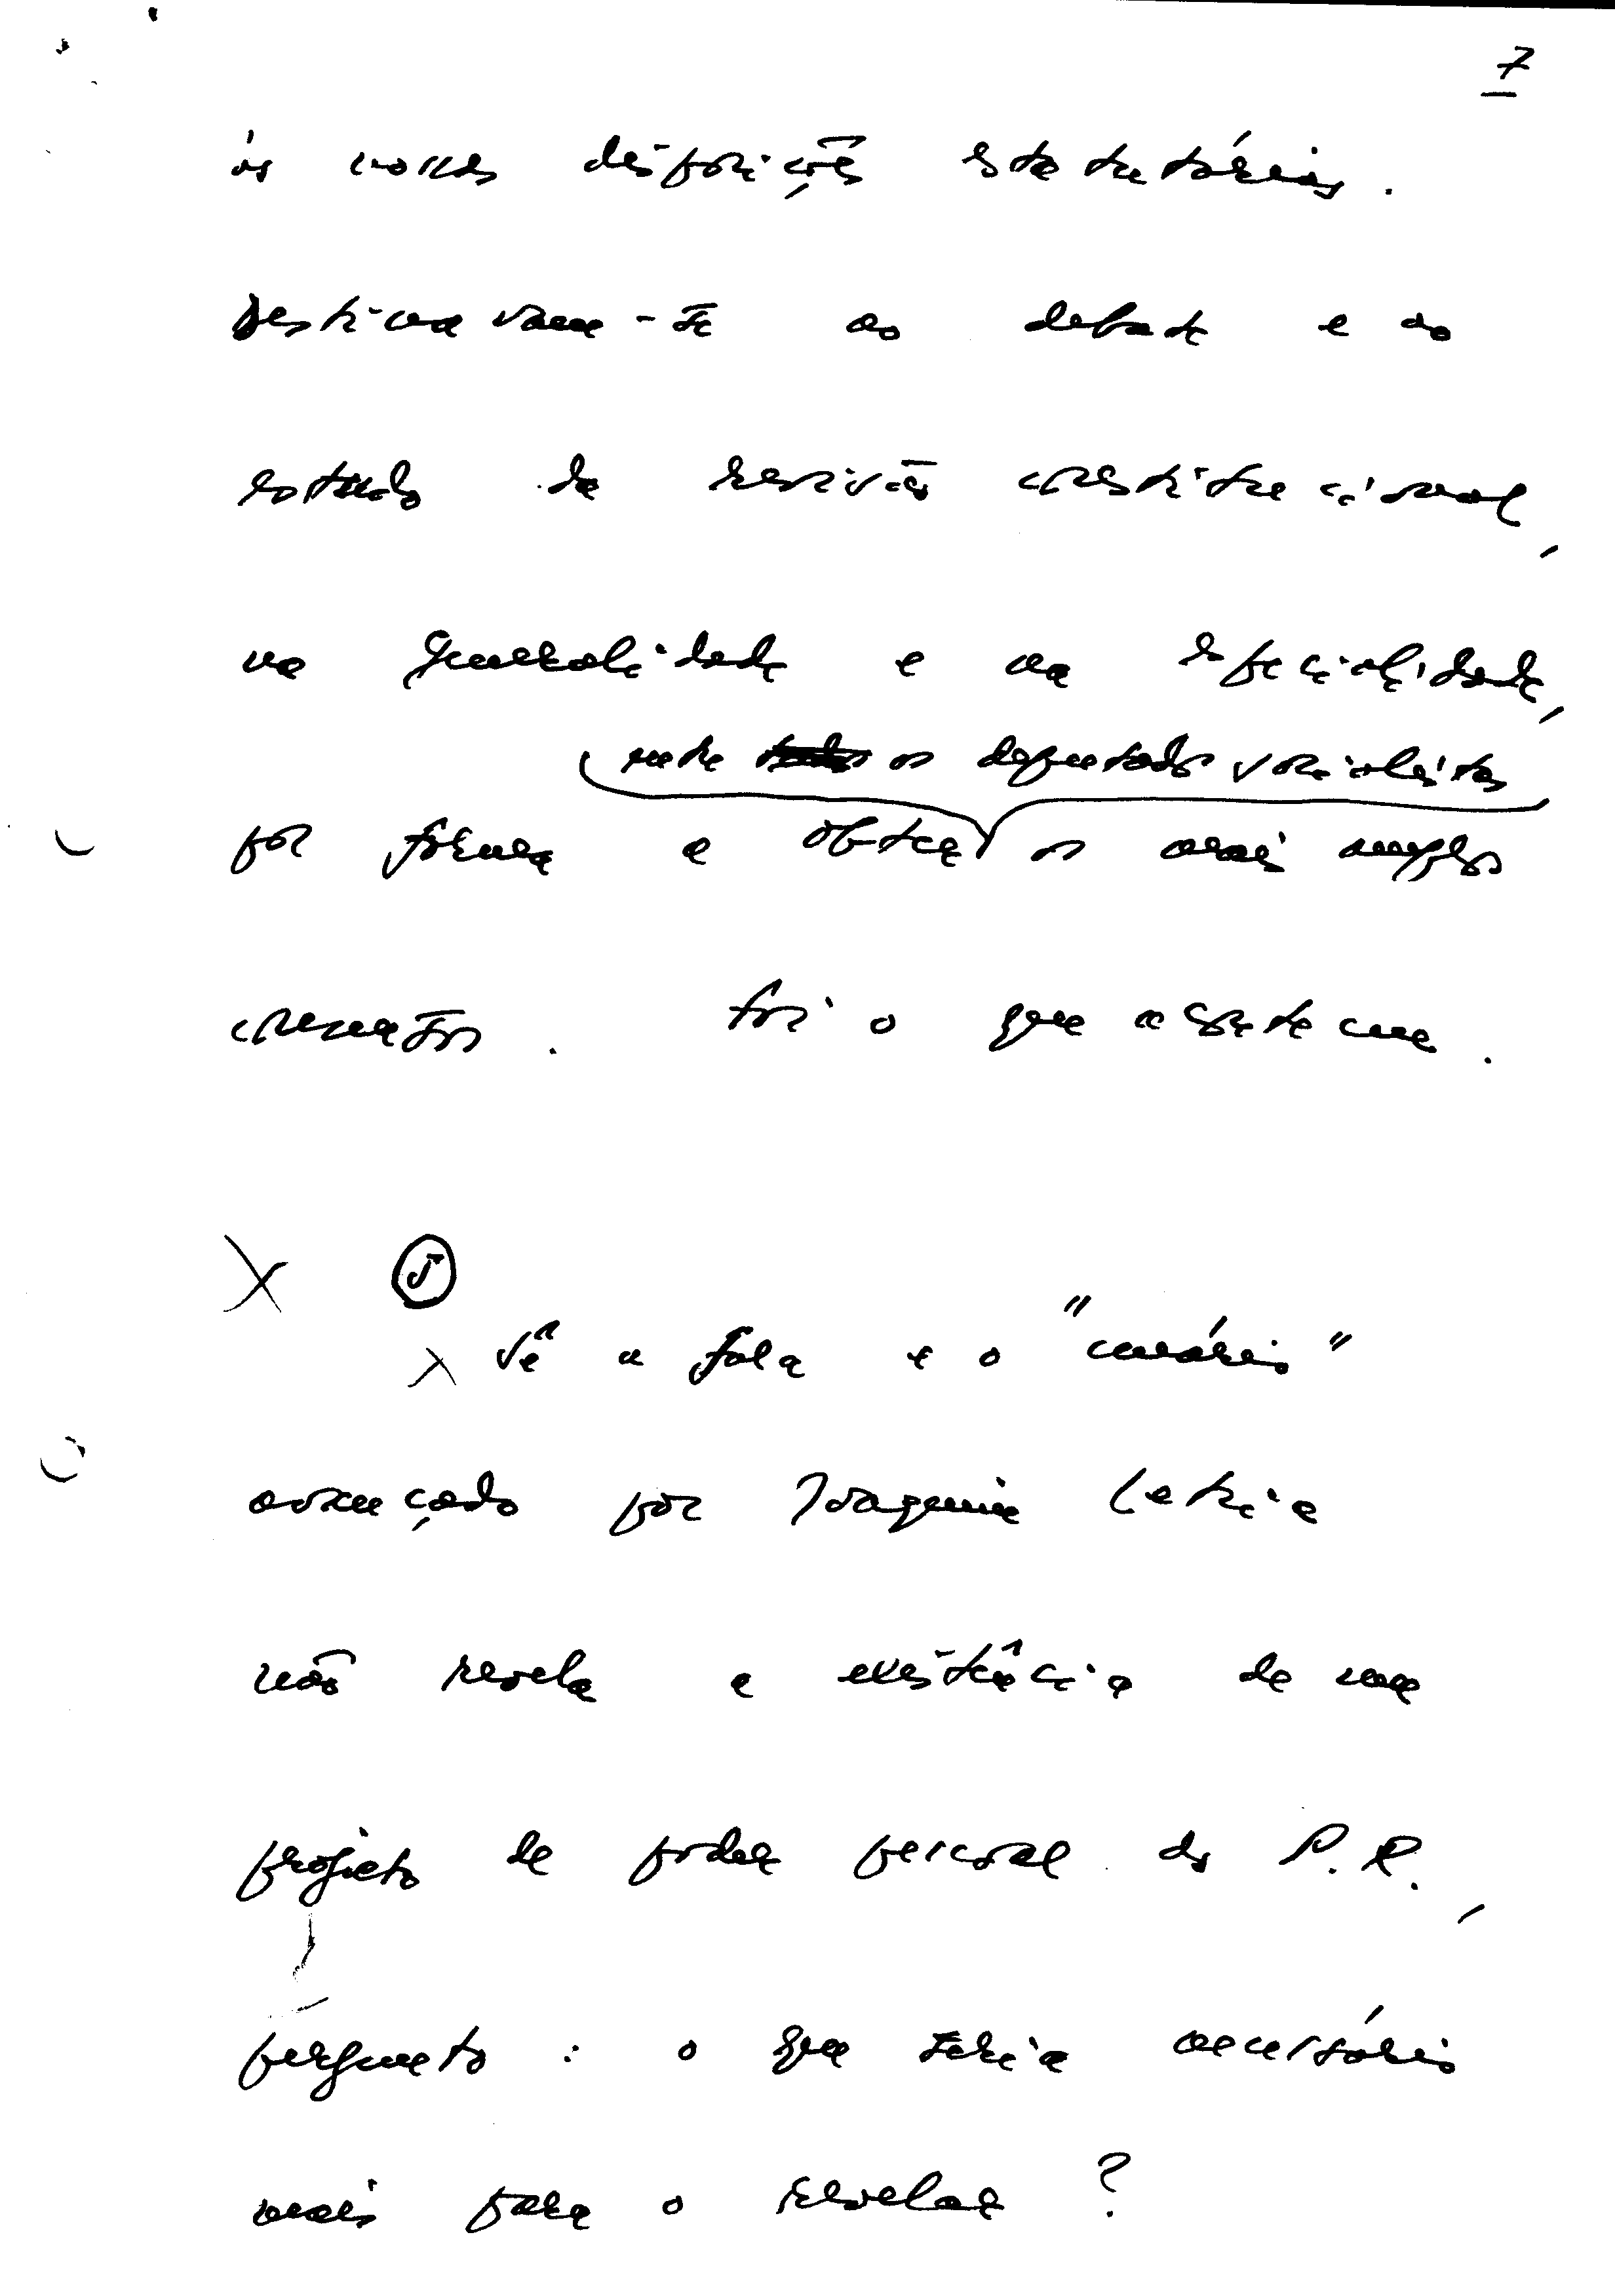 7
às nossas disposições estatutárias.
Destinavam-se ao debate e ao
estudo da revisão constitucional,
na generalidade e na especialidade,
entre todos os deputados socialistas
por forma a obter os mais amplos
consensos. Foi o que aconteceu.
X 5
X Se a fala e o "cenário"
avançado por Joaquim Letria
não revela a existência de um
projeto de poder pessoal do P.R.,
pergunto: o que seria necessário
mais para o revelar?